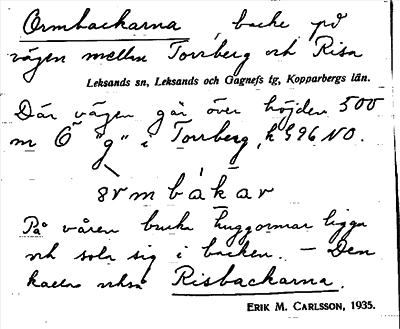 Ormbackarna, backe på
vägen mellan Torrberg och Risa
Leksands sn, Leksands och Gagnefs tg, Kopparbergs län.
Där vägen går över höjden 500
m Ö "g" i Torrberg, k 596 NO.
ɷrmbákàr
På våren bruka huggormar ligga
och sola sig i backen. — Den
kallas också Risbackarna.
ERIK M. CARLSSON, 1935.